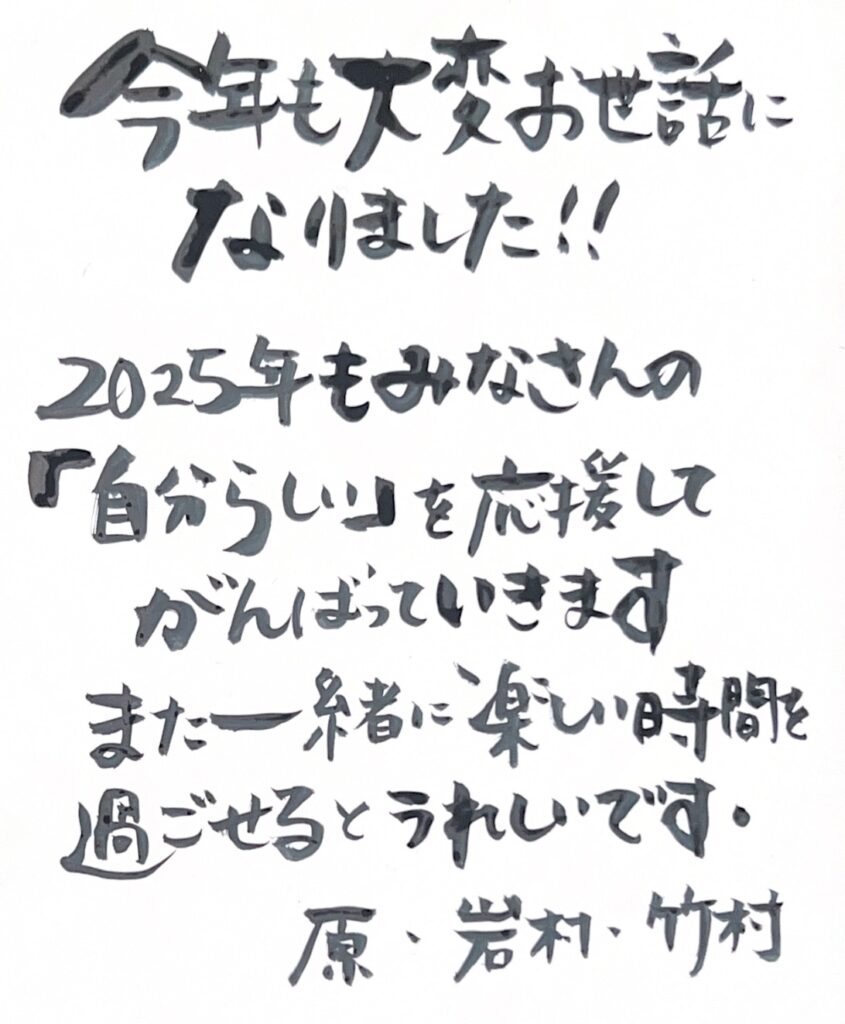 今年も大変お世話に
なりました!!
2025年もみなさんの
「自分らしい」を応援して
がんばっていきます
また一緒に楽しい時間を
過ごせるとうれしいです.
原・岩村・竹村